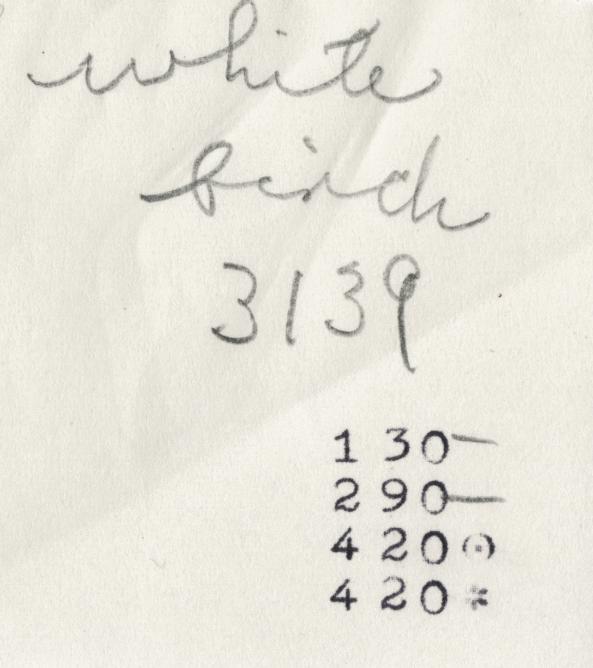 white
birch
3139
1 30 —
2 90 —
4 20 ⊙
4 20 *